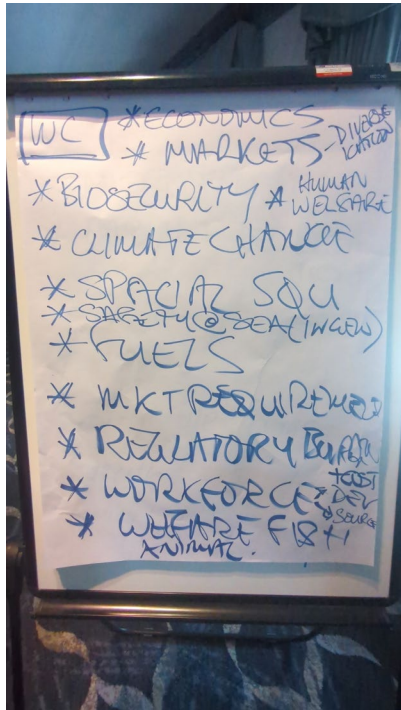 WC
* ECONOMICS
* MARKETS - DIVERSE
ICATION
* BIOSECURITY * HUMAN
WELSARE
* CLIMATE CHANGE
* SPACIAL SQU
* SAFETY @ SEA (INGEN)
* FUELS
* MKT REQUIREMED
* REGULATORY
+ COST
* WORKFORCE DEV
SOURCE
* WELFARE FISH
ANIMAL.